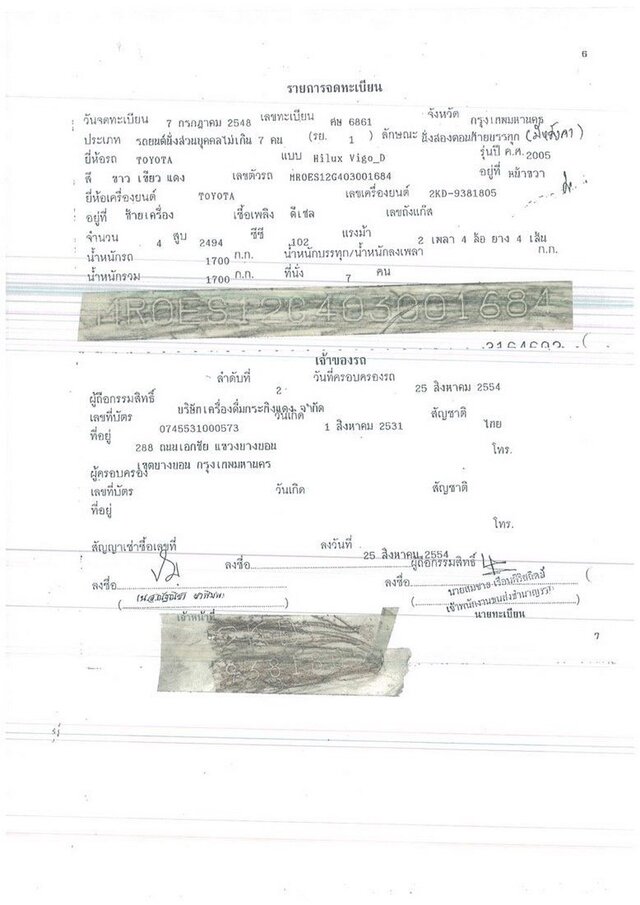 6
รายการจดทะเบียน
วันจดทะเบียน 7 กรกฎาคม 2548 เลขทะเบียน ศษ 6861 จังหวัด กรุงเทพมหานคร
ประเภท รถยนต์นั่งส่วนบุคคลไม่เกิน 7 คน (รย. 1 ) ลักษณะ นั่งสองตอนท้ายบรรทุก (มีหลังคา)
ยี่ห้อรถ TOYOTA แบบ Hilux Vigo_D รุ่นปี ค.ศ. 2005
สี ขาว เขียว แดง เลขตัวรถ MROES12G403001684 อยู่ที่ หน้าขวา
ยี่ห้อเครื่องยนต์ TOYOTA เลขเครื่องยนต์ 2KD-9381805
อยู่ที่ ซ้ายเครื่อง เชื้อเพลิง ดีเซล เลขถังแก๊ส
จำนวน 4 สูบ 2494 ซีซี 102 แรงม้า 2 เพลา 4 ล้อ ยาง 4 เส้น
น้ำหนักรถ 1700 ก.ก. น้ำหนักบรรทุก/น้ำหนักลงเพลา ก.ก.
น้ำหนักรวม 1700 ก.ก. ที่นั่ง 7 คน
MROES12G403001684
เจ้าของรถ
ลำดับที่ 2 วันที่ครอบครองรถ 25 สิงหาคม 2554
ผู้ถือกรรมสิทธิ์ บริษัทเครื่องดื่มกระทิงแดง จำกัด
เลขที่บัตร 0745531000573 วันเกิด 1 สิงหาคม 2531 สัญชาติ ไทย
ที่อยู่ 288 ถนนเอกชัย แขวงบางบอน โทร.
เขตบางบอน กรุงเทพมหานคร
ผู้ครอบครอง
เลขที่บัตร วันเกิด สัญชาติ
ที่อยู่
โทร.
สัญญาเช่าซื้อเลขที่ ลงวันที่ 25 สิงหาคม 2554
ลงชื่อ ผู้ถือกรรมสิทธิ์
ลงชื่อ ลงชื่อ
เจ้าหน้าที่ นายทะเบียน
7